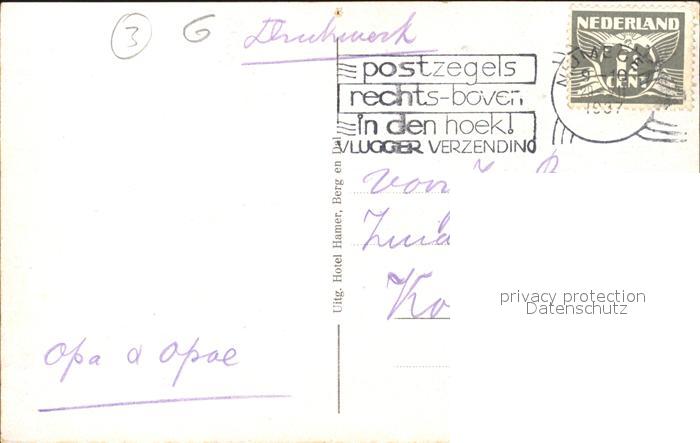 3 6 Drukwerk
NEDERLAND
CENT
postzegels
rechts-boven
in den hoek!
VLUGGER VERZENDING
1937
Uitg. Hotel Hamer, Berg en Dal
Voor
Zuid
Ko
privacy protection
Datenschutz
Opa & Opoe